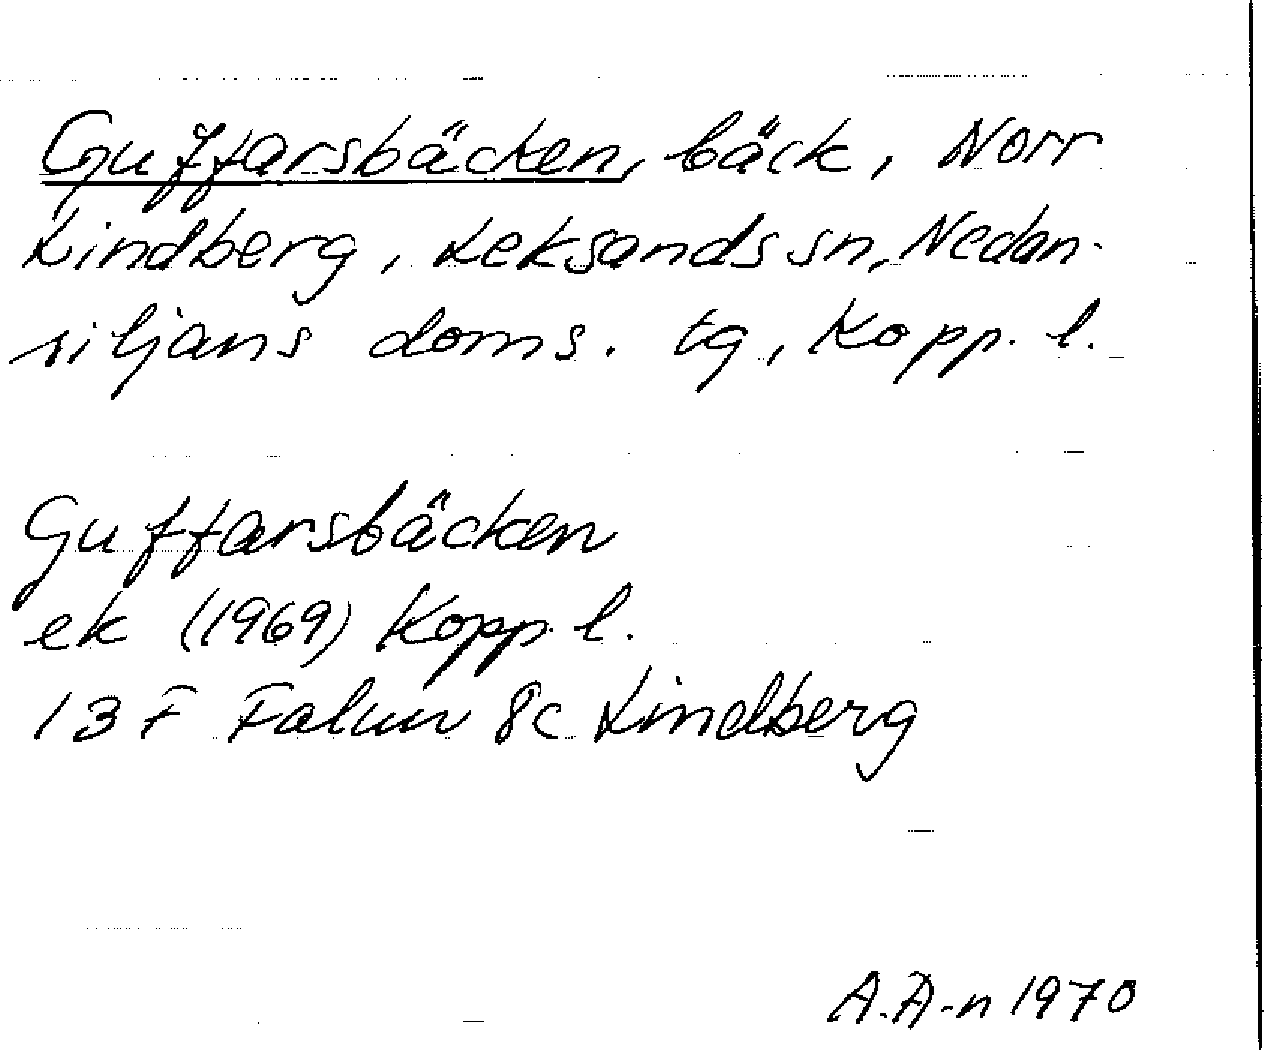 Guffarsbäcken, bäck, Norr
Lindberg, Leksands sn, Nedan-
siljans doms. tg, Kopp. l.
Guffarsbäcken
ek (1969) Kopp. l.
13F Falun 8c Lindberg
A.A-n 1970